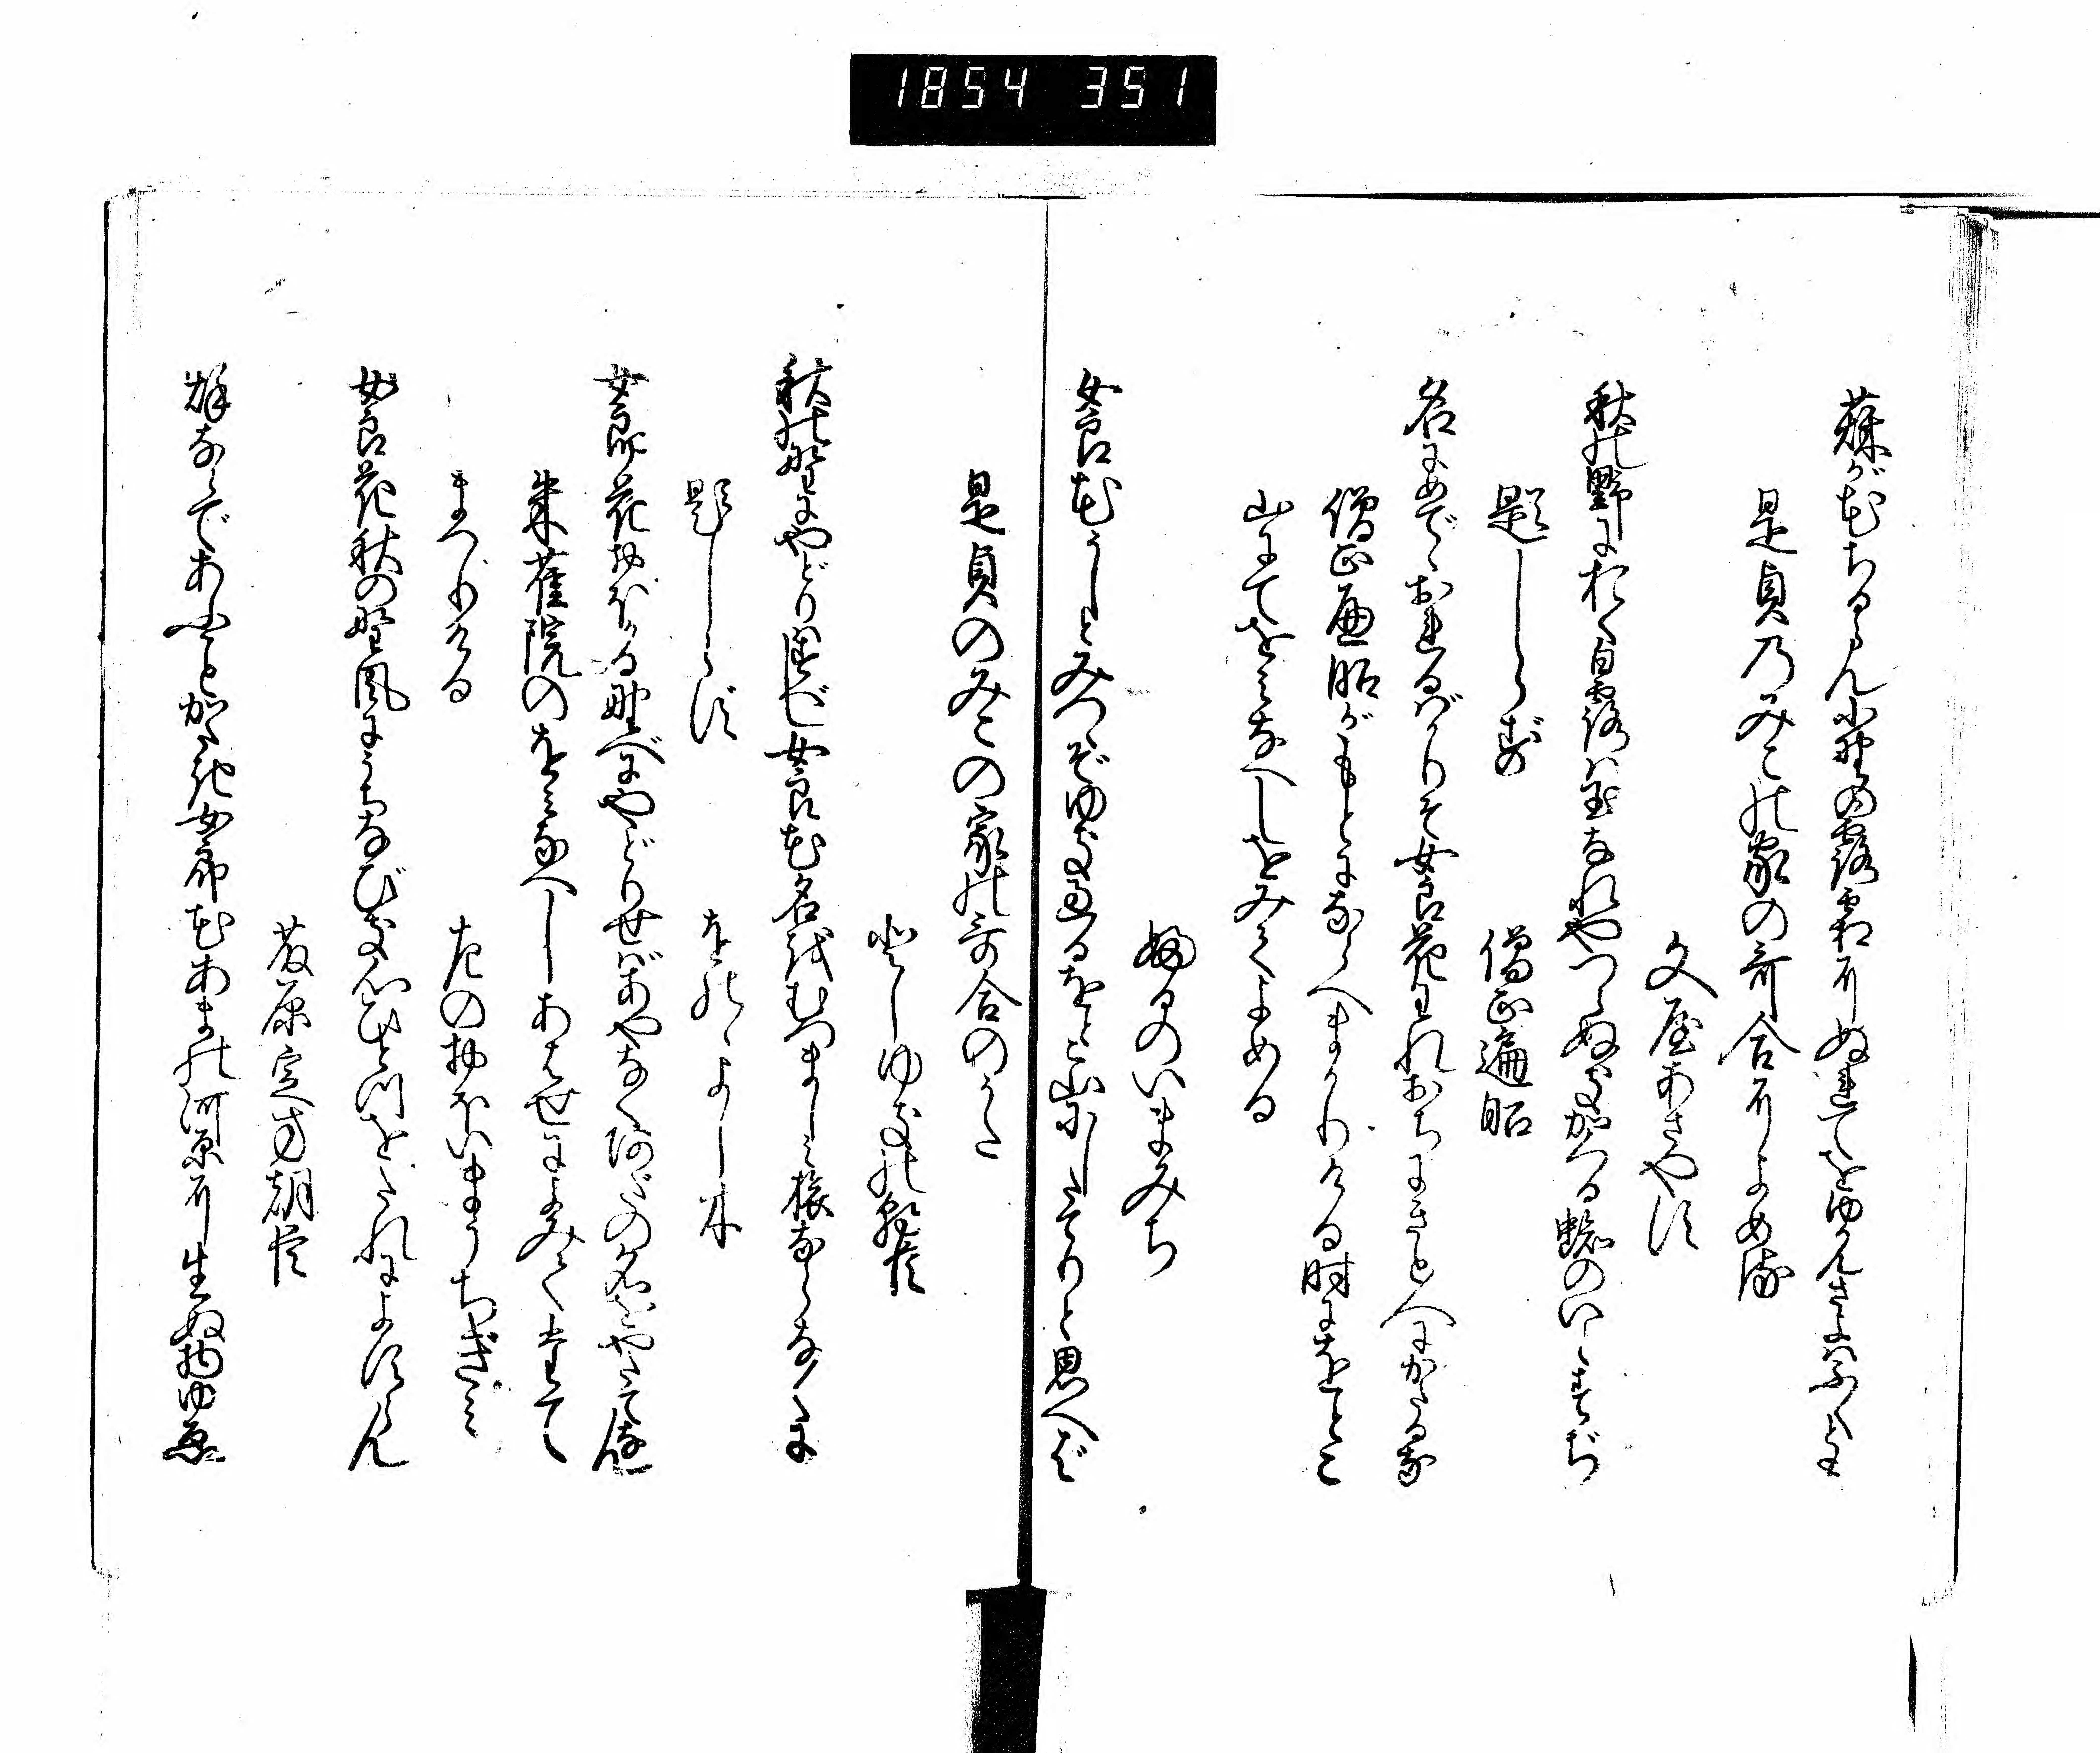 1854 351
萩が花ちるらん小野の露霜にぬれてをゆかんさよはふくとも
是貞のみこの家の哥合によめる
文屋あさやす
秋の野におく白露は玉なれやつらぬきかくる蜘のいとすぢ
題しらず
僧正遍昭
名にめでゝおれるばかりぞ女良花われおちにきと人にかたるな
僧正遍昭がもとにならへまかりける時にをとこ
山にてをみなへしをみてよめる
ふるのいまみち
女良花うしとみつゝぞゆき過るをとこ山にしたてりと思へば
是貞のみこの家の哥合のうた
としゆきの朝臣
秋の野にやどりはすべし女良花名をむつましみ旅ならなくに
題しらず
をのゝよし木
女郎花おほかる野べにやどりせばあやなくあだの名をやたちなん
朱雀院のをみなへしあはせによみてたてま
つりける
左のおほいまうちぎみ
女良花秋の野風にうちなびき心ひとつをたれによすらん
藤原定方朝臣
秋ならであふことかたき女郎花あまの河原に生ぬ物ゆゑ